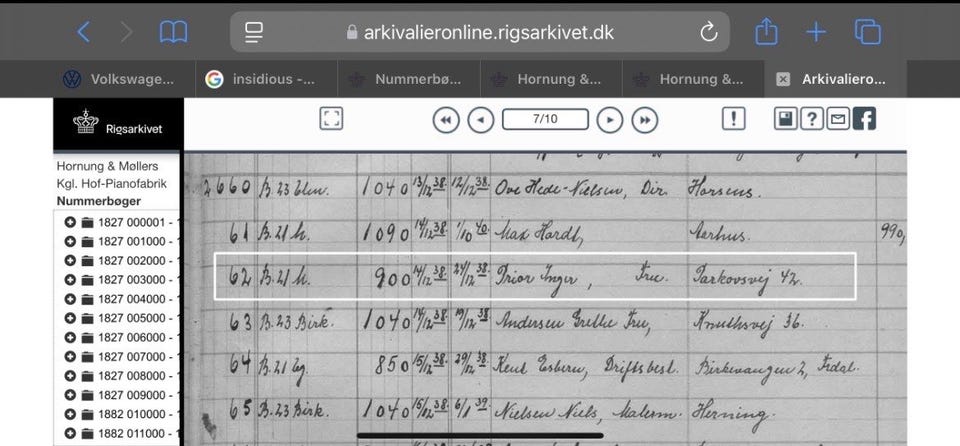 arkivalieronline.rigsarkivet.dk
Volkswage...
insidious -...
Nummerbø...
Hornung &...
Hornung &...
Arkivaliero...
Rigsarkivet
7/10
Hornung & Møllers
Kgl. Hof-Pianofabrik
Nummerbøger
1827 000001 - 1
1827 001000 - 1
1827 002000 - 1
1827 003000 - 1
1827 004000 - 1
1827 005000 - 1
1827 006000 - 1
1827 007000 - 1
1827 008000 - 1
1827 009000 - 1
1882 010000 - 1
1882 011000 - 1
2660 B.23 1040 13/12 38. 12/12 38. Ove Hede-Nielsen, Dir. Horsens.
61 B.21 M. 1090 14/12 38. 1/10 40. Max Hardt, Aarhus. 990,
62 B.21 M. 900 14/12 38. 38. Prior Inger, Fru. Parkovsvej 42.
63 B.23 Birk. 1040 14/12 38. 19/12 38 Andersen Grethe Fru, Knuthsvej 36.
64 B.21 Eg. 850 15/12 38. 29/12 38. Esbern, Driftsbest. Birkevangen 2,
65 B.23 Birk. 1040 15/12 38. 6/1 39. Nielsen Niels, Malerm. Herning.